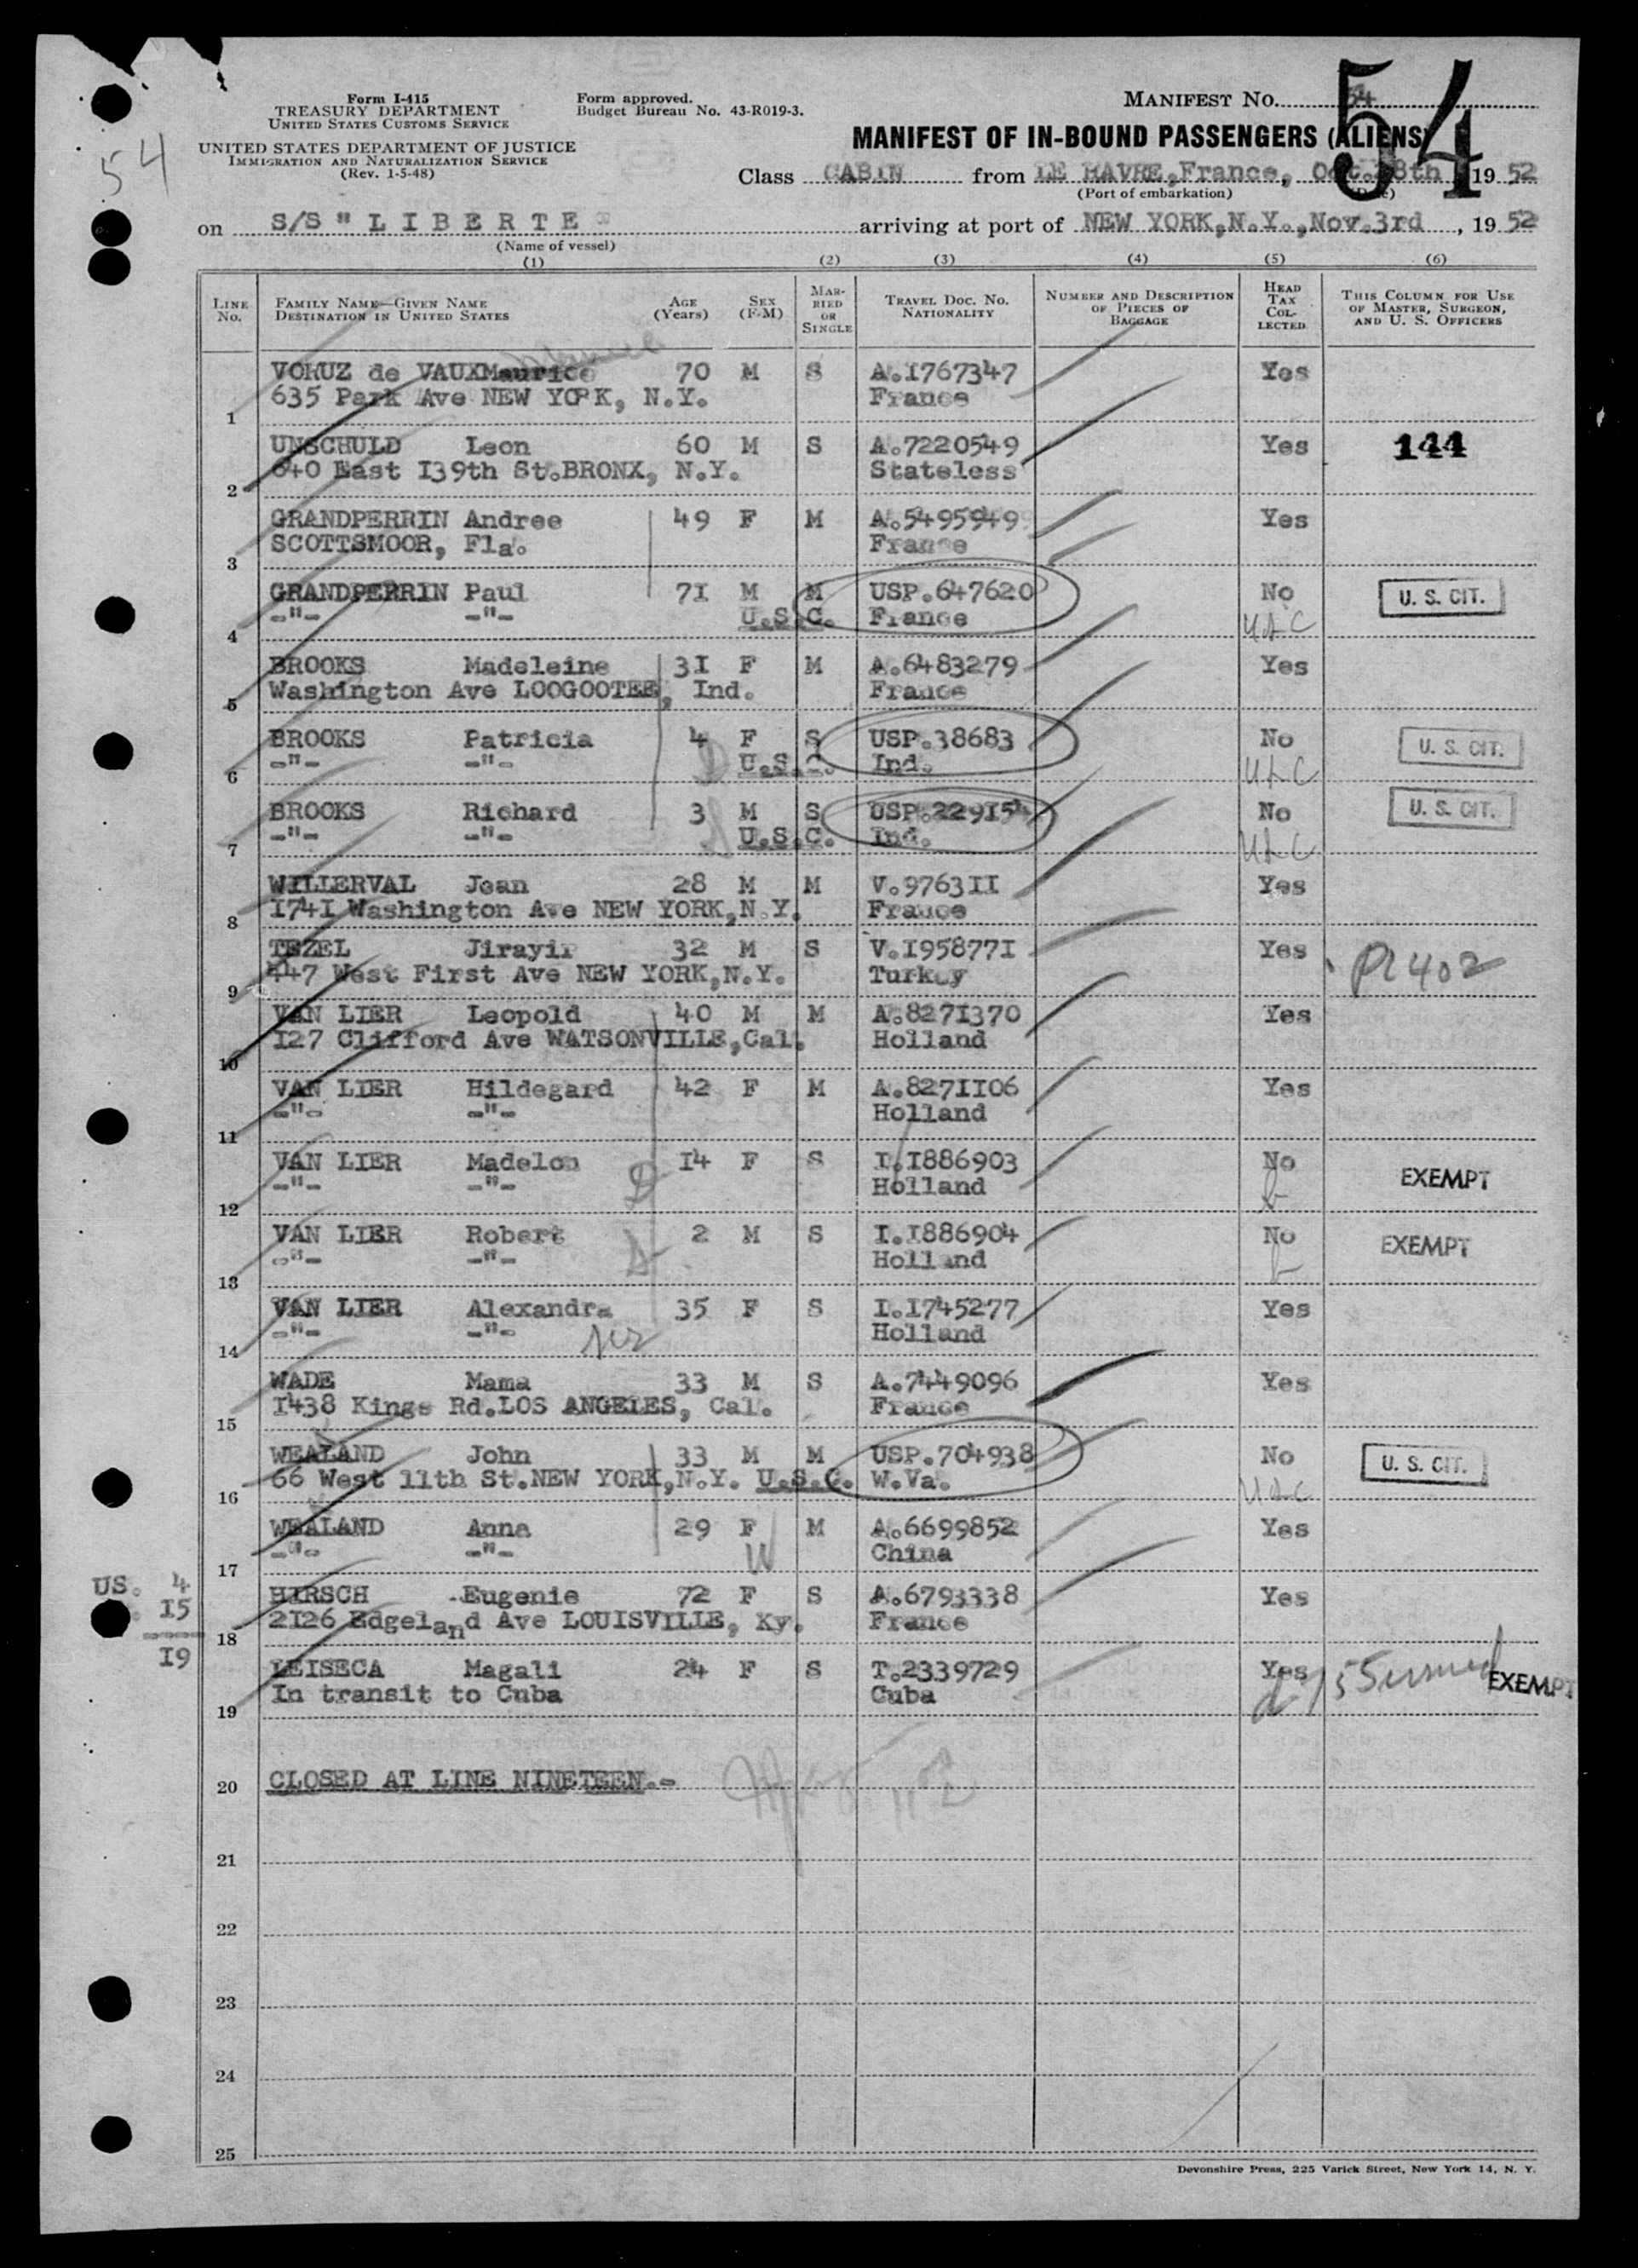 Form I-415
TREASURY DEPARTMENT
UNITED STATES CUSTOMS SERVICE
UNITED STATES DEPARTMENT OF JUSTICE
IMMIGRATION AND NATURALIZATION SERVICE
(Rev. 1-5-48)
Form approved.
Budget Bureau No. 43-R019-3.
MANIFEST No. 54
54
54
MANIFEST OF IN-BOUND PASSENGERS (ALIENS)
Class CABIN from LE HAVRE,France, Oct. 28th 19 52
(Port of embarkation)
on S/S " L I B E R T E " arriving at port of NEW YORK,N.Y.,Nov.3rd , 19 52
(Name of vessel)
(1) (2) (3) (4) (5) (6)
LINE No. FAMILY NAME—GIVEN NAME DESTINATION IN UNITED STATES AGE (Years) SEX (F-M) MARRIED OR SINGLE TRAVEL DOC. NO. NATIONALITY NUMBER AND DESCRIPTION OF PIECES OF BAGGAGE HEAD TAX COLLECTED THIS COLUMN FOR USE OF MASTER, SURGEON, AND U. S. OFFICERS
VORUZ de VAUXMaurice 70 M S A.I767347 Yes
1 635 Park Ave NEW YORK, N.Y. France
UNSCHULD Leon 60 M S A.7220549 Yes 144
2 640 East I39th St.BRONX, N.Y. Stateless
GRANDPERRIN Andree 49 F M A.5495949 Yes
3 SCOTTSMOOR, Fla. France
GRANDPERRIN Paul 7I M M USP.647620 No U. S. CIT.
4 -"- -"- U.S.C. France
BROOKS Madeleine 3I F M A.6483279 Yes
5 Washington Ave LOOGOOTEE, Ind. France
BROOKS Patricia 4 F S USP.38683 No U. S. CIT.
6 -"- -"- U.S.C. Ind.
BROOKS Richard 3 M S USP.229I54 No U. S. CIT.
7 -"- -"- U.S.C. Ind.
WILLERVAL Jean 28 M M V.9763II Yes
8 I74I Washington Ave NEW YORK,N.Y. France
TEZEL Jirayir 32 M S V.I95877I Yes
9 447 West First Ave NEW YORK,N.Y. Turkey
VAN LIER Leopold 40 M M A.827I370 Yes
10 I27 Clifford Ave WATSONVILLE,Cal. Holland
VAN LIER Hildegard 42 F M A.827II06 Yes
11 -"- -"- Holland
VAN LIER Madelon I4 F S I.I886903 No EXEMPT
12 -"- -"- Holland
VAN LIER Robert 2 M S I.I886904 No EXEMPT
13 -"- -"- Holland
VAN LIER Alexandra 35 F S I.I745277 Yes
14 -"- -"- Holland
WADE Mama 33 M S A.7449096 Yes
15 I438 Kings Rd.LOS ANGELES, Cal. France
WEALAND John 33 M M USP.704938 No U. S. CIT.
16 66 West 11th St.NEW YORK,N.Y. U.S.C. W.Va.
WEALAND Anna 29 F M A.6699852 Yes
17 -"- -"- China
US. 4
I5
I9
HIRSCH Eugenie 72 F S A.6793338 Yes
18 2I26 Edgeland Ave LOUISVILLE, Ky. France
LEISECA Magali 24 F S T.2339729 Yes EXEMPT
19 In transit to Cuba Cuba
20 CLOSED AT LINE NINETEEN.-
21
22
23
24
25
Devonshire Press, 225 Varick Street, New York 14, N. Y.